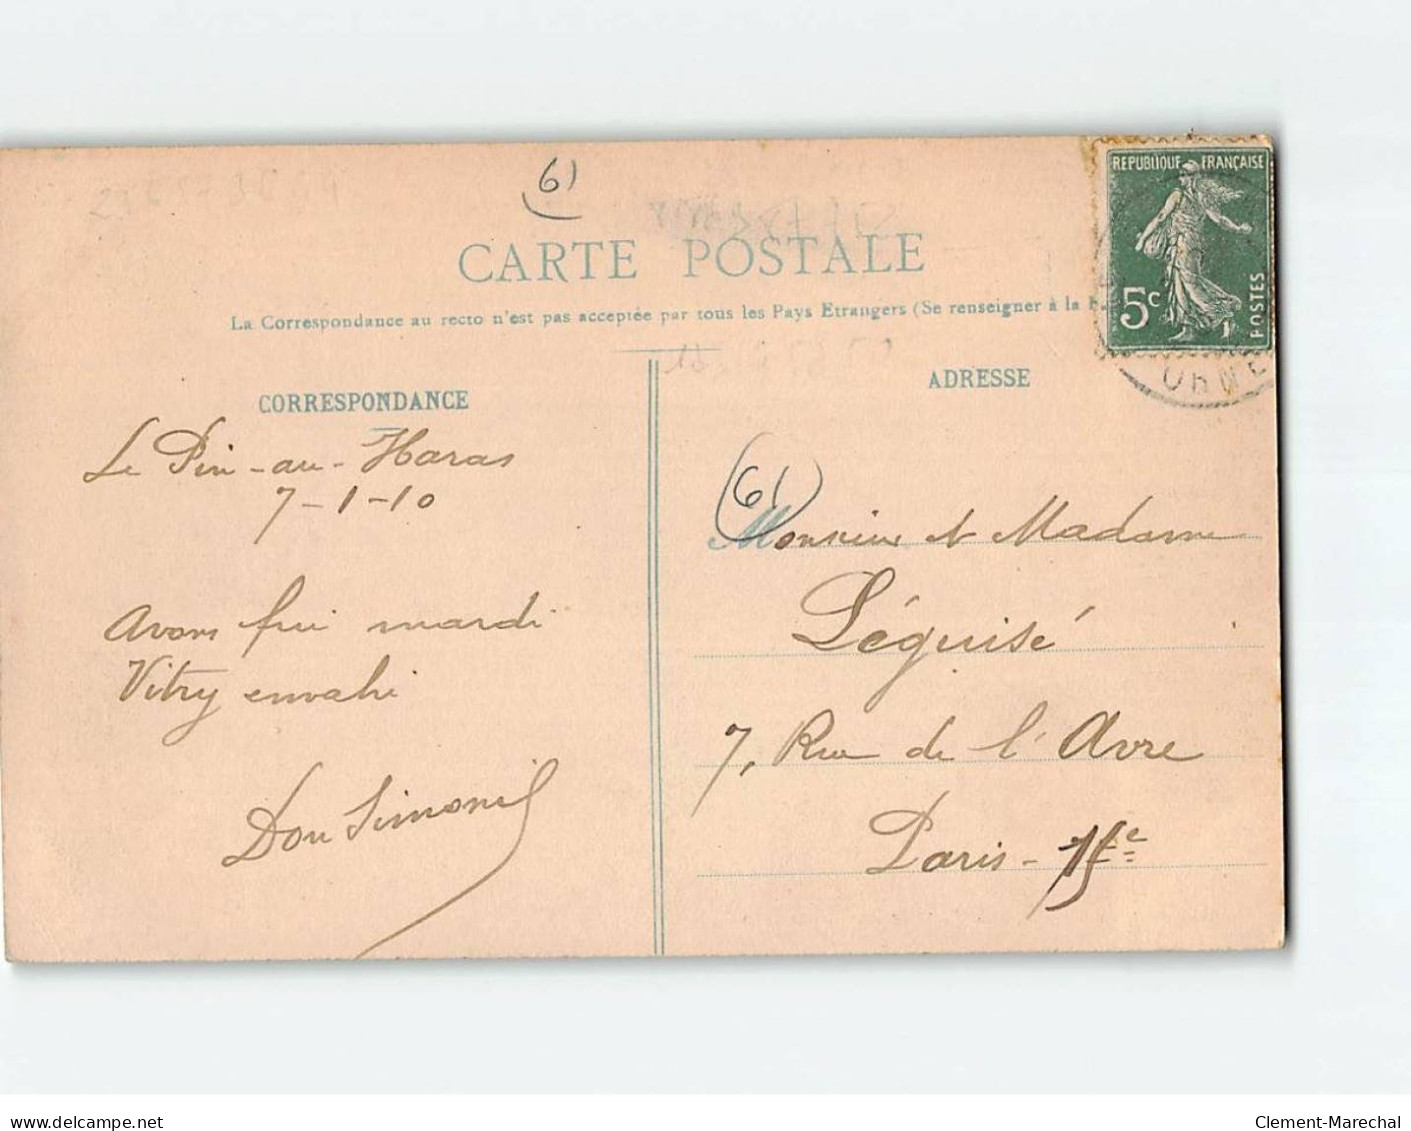 61
CARTE POSTALE
La Correspondance au recto n'est pas acceptée par tous les Pays Etrangers (Se renseigner à la
REPUBLIQUE FRANÇAISE
5c
POSTES
ORNE
CORRESPONDANCE
Le Pin-au-Haras
7-1-10
Avons fui mardi
Vitry envahi
Don Simonil
ADRESSE
(61)
Monsieur et Madame
Léguisé
7, Rue de l'Avre
Paris - 15e
delcampe.net
Clement-Marechal